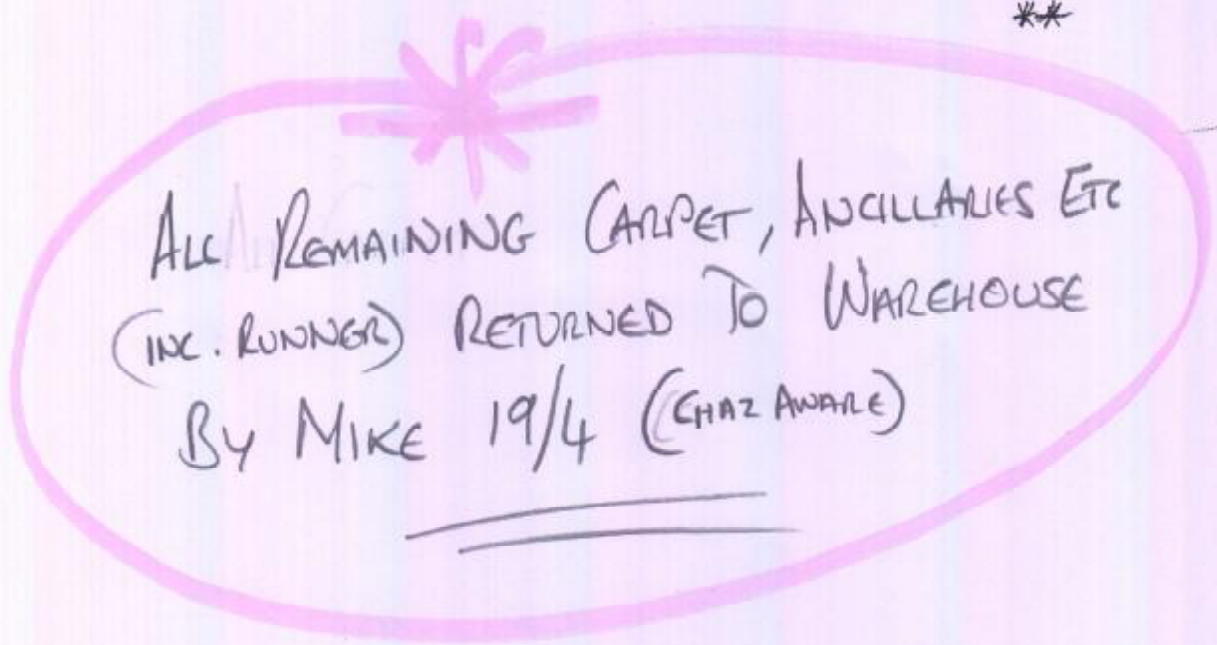 **
ALL REMAINING CARPET, ANCILLARIES ETC
(INC. RUNNER) RETURNED TO WAREHOUSE
BY MIKE 19/4 (CHAZ AWARE)